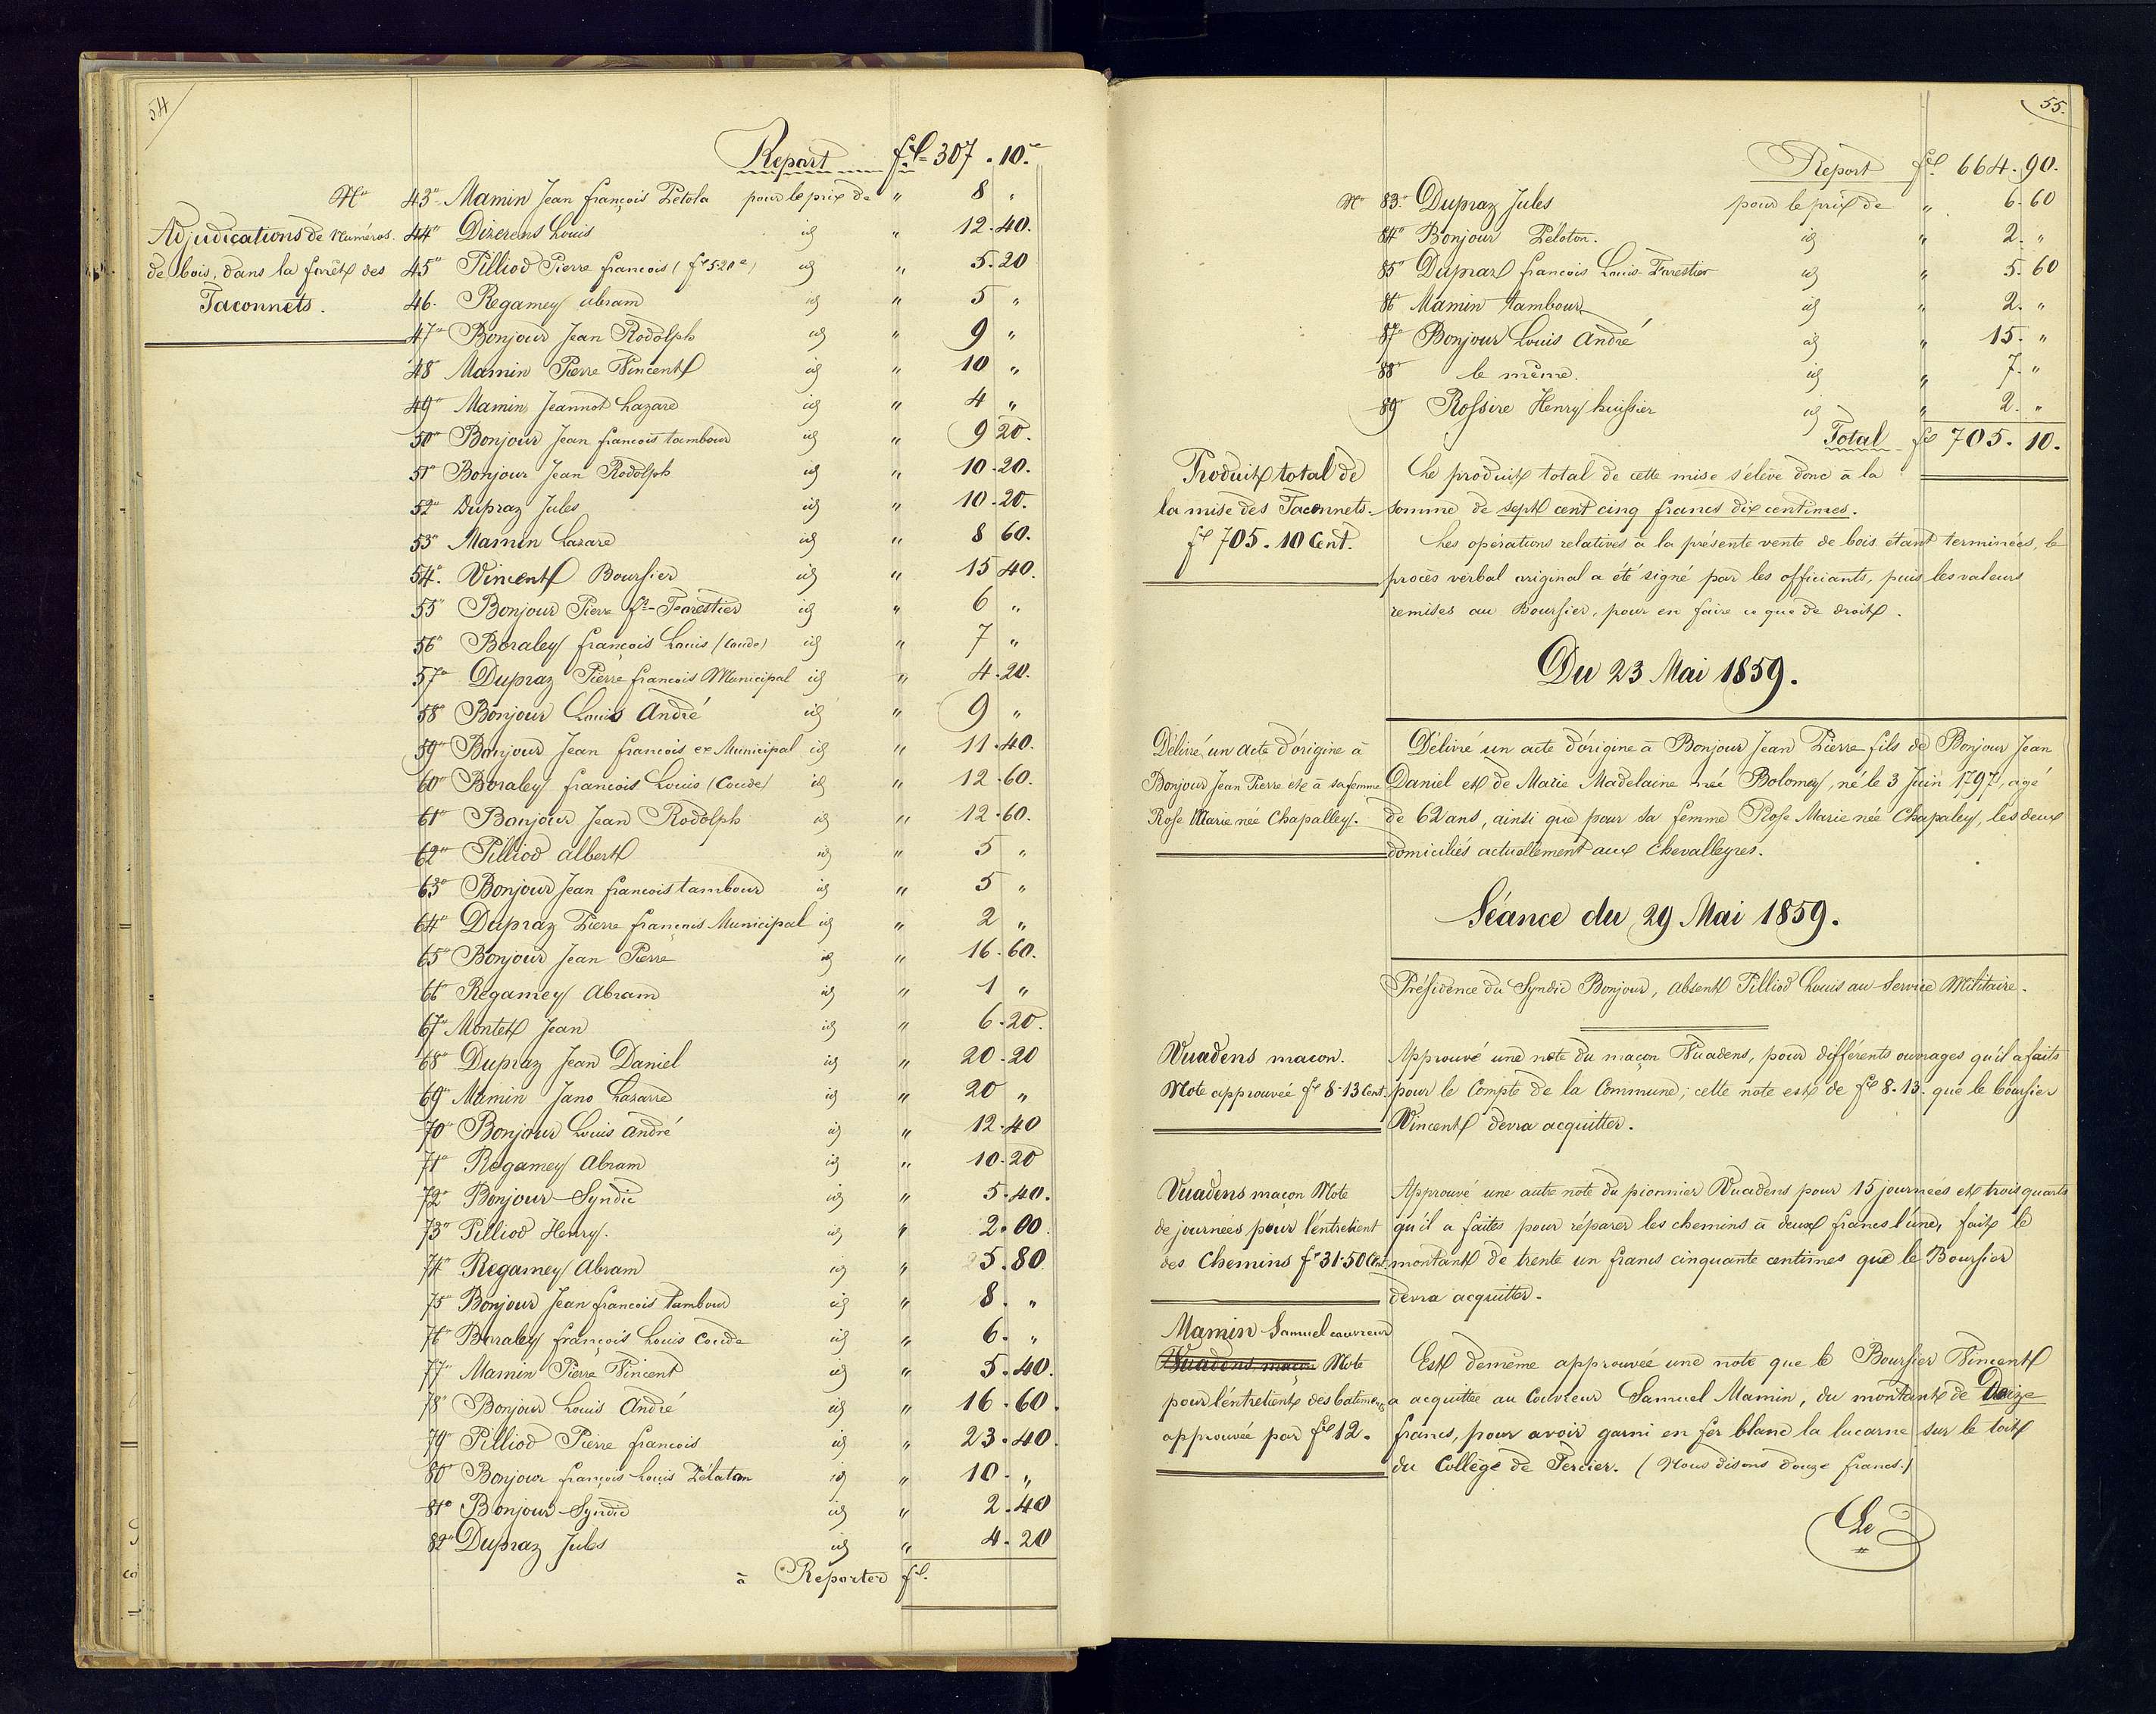 54
Report frs. 307 . 10.c
No 43" Mamin Jean françois Pétola pour le prix de " 8 "
Adjudications de Numéros 44" Dizerens Louis id " 12.40.
de bois, dans la forêt des 45" Pilliod Pierre francois (fs 5.20c) id " 5.20
Taconnets. 46. Regamey abram id " 5 "
47" Bonjour Jean Rodolph id " 9 "
48 Mamin Pierre Vincent id " 10 "
49" Mamin Jeannot Lazare id " 4 "
50" Bonjour Jean francois tambour id " 9 20.
51" Bonjour Jean Rodolph id " 10.20.
52" Dupraz Jules id " 10.20.
53" Mamin Lazare id " 8 60.
54". Vincent Boursier id " 15 40.
55" Bonjour Pierre fs- Forestier id " 6 "
56" Boraley françois Louis (Coude) id " 7 "
57" Dupraz Pierre francois Municipal id " 4.20.
58" Bonjour Louis André id " 9 "
59" Bonjour Jean francois ex Municipal id " 11.40.
60" Boraley francois Louis (Coude) id " 12.60.
61" Bonjour Jean Rodolph id " 12.60.
62" Pilliod albert id " 5 "
63" Bonjour Jean francois tambour id " 5 "
64" Dupraz Pierre françois Municipal id " 2 "
65" Bonjour Jean Pierre id " 16.60.
66" Regamey Abram id " 1 "
67" Montet Jean id " 6.20.
68" Dupraz Jean Daniel id " 20.20
69" Mamin Jano Lazarre id " 20 "
70" Bonjour Louis andré id " 12.40
71" Regamey Abram id " 10.20
72" Bonjour Syndic id " 5.40.
73" Pilliod Henry. id " 2.00
74" Regamey Abram id " 5.80
75" Bonjour Jean francois tambour id " 8. "
76" Boraley françois Louis Coude id " 6. "
77" Mamin Pierre Vincent id " 5.40.
78" Bonjour Louis André id " 16.60.
79" Pilliod Pierre francois id " 23.40.
80" Bonjour françois Louis Pélaton id " 10. "
81" Bonjour Syndic id " 2.40
82" Dupraz Jules id " 4.20
à Reporter frs.
55.
Report frs 664.90.
No 83." Dupraz Jules pour le prix de " 6.60
84" Bonjour Péloton. id " 2. "
85" Dupraz francois Louis Forestier id " 5.60
86" Mamin tambour id " 2. "
87" Bonjour Louis André id " 15. "
88" le même. id " 7. "
89" Rossire Henry huissier id " 2. "
Total frs 705.10.
Produit total de
la mise des Taconnets.
fs 705.10 Cent.
Le produit total de cette mise s'élève donc à la
somme de sept cent cinq francs dix centimes.
Les opérations relatives à la présente vente de bois étant terminées, le
procès verbal original a été signé par les officiants, puis les valeurs
remises au Boursier, pour en faire ce que de droit.
Du 23 Mai 1859.
Délivré un acte d'origine à
Bonjour Jean Pierre et à sa femme
Rose Marie née Chapalley.
Délivré un acte d'origine à Bonjour Jean Pierre fils de Bonjour Jean
Daniel et de Marie Madelaine née Bolomey, né le 3 Juin 1797, agé
de 62 ans, ainsi que pour sa femme Rose Marie née Chapaley, les deux
domiciliés actuellement aux Chevalleyres.
Séance du 29 Mai 1859.
Présidence du Syndic Bonjour, absent Pilliod Louis au Service Militaire.
Vuadens maçon.
Note approuvée fs 8.13 Cent.
Approuvé une note du maçon Vuadens, pour différents ouvrages qu'il a faits
pour le Compte de la Commune; cette note est de frs 8.13. que le boursier
Vincent devra acquitter.
Vuadens maçon Note
de journées pour l'entretient
des Chemins fs 31.50 Cent
Approuvé une autre note du pionnier Vuadens pour 15 journées et trois quarts
qu'il a faites pour réparer les chemins à deux francs l'une, fait le
montant de trente un francs cinquante centimes que le Boursier
devra acquitter.
Mamin Samuel couvreur
Vuadens maçon Note
pour l'entretient des batiments
approuvée par frs 12.
Est demême approuvée une note que le Boursier Vincent
a acquittée au Couvreur Samuel Mamin, du montant de Douze
francs, pour avoir garni en fer blanc la lucarne sur le toit
du Collège de Tercier. (Nous disons douze francs.)
Le